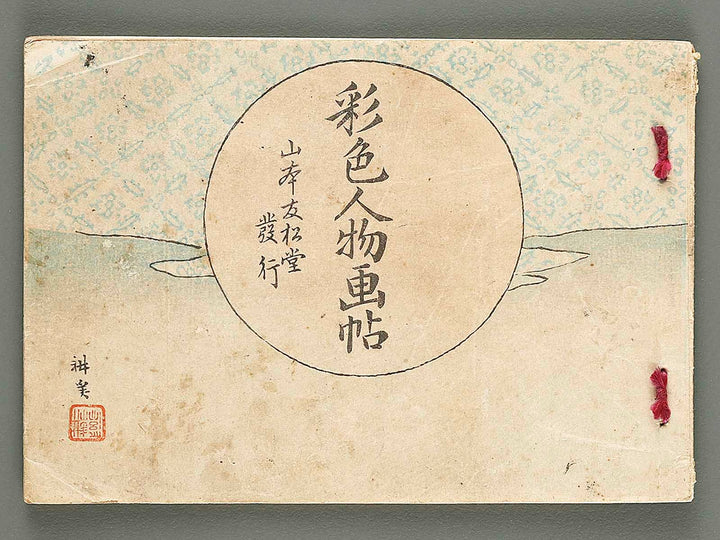 彩色人物画帖
山本友松堂
發行
耕美